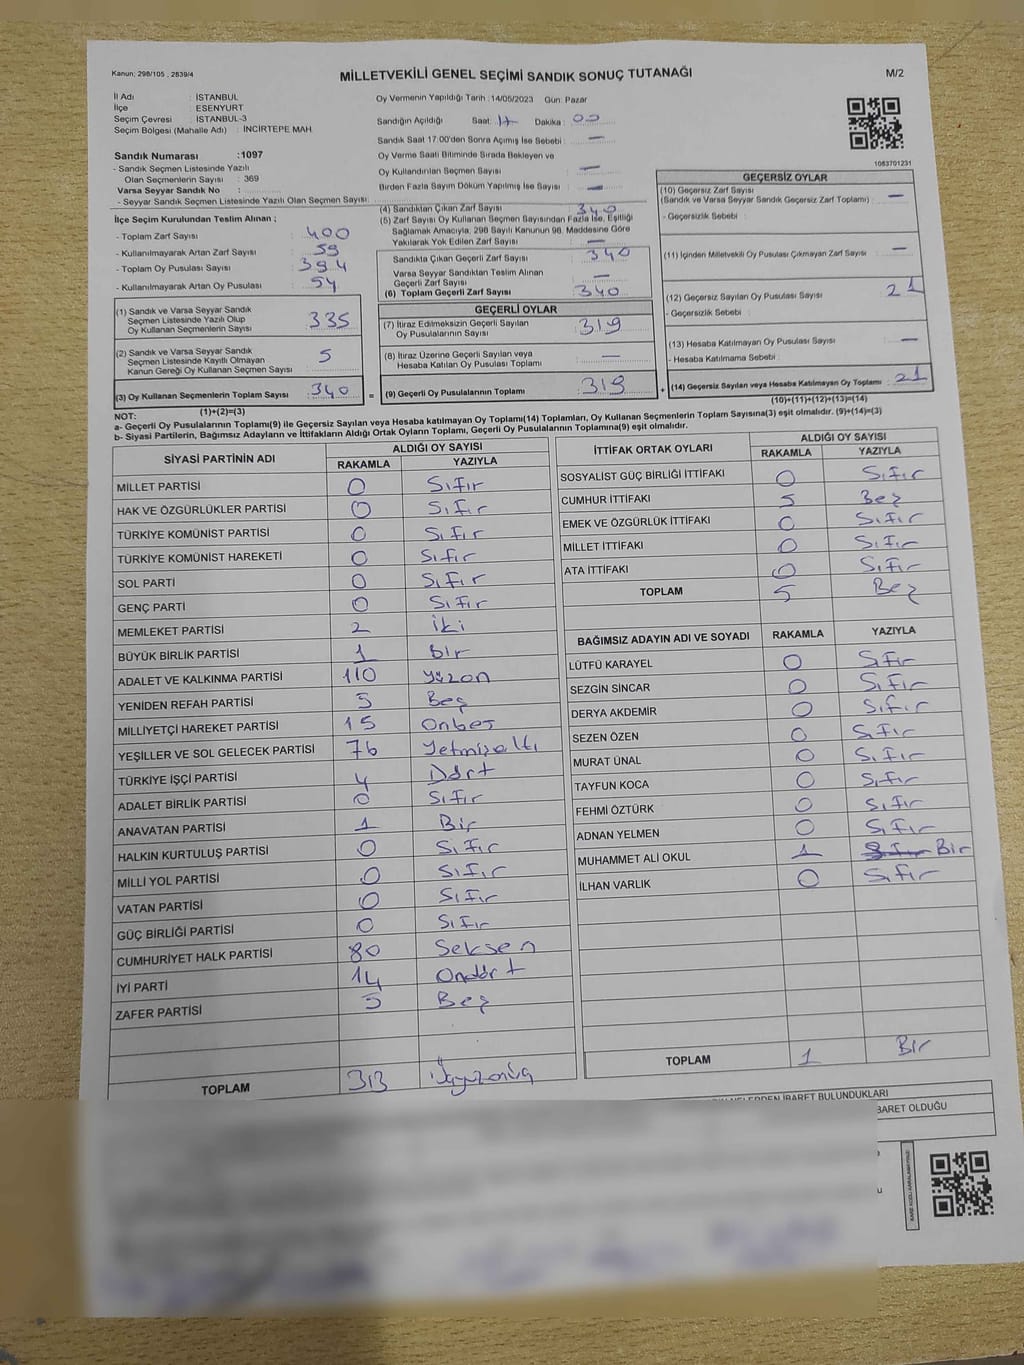 Kanun; 298/105 , 2839/4
MİLLETVEKİLİ GENEL SEÇİMİ SANDIK SONUÇ TUTANAĞI
M/2
İl Adı : İSTANBUL
İlçe : ESENYURT
Seçim Çevresi : İSTANBUL-3
Seçim Bölgesi (Mahalle Adı) : İNCİRTEPE MAH
Sandık Numarası :1097
- Sandık Seçmen Listesinde Yazılı
Olan Seçmenlerin Sayısı : 369
Varsa Seyyar Sandık No :
- Seyyar Sandık Seçmen Listesinde Yazılı Olan Seçmen Sayısı:
İlçe Seçim Kurulundan Teslim Alınan ;
- Toplam Zarf Sayısı : 400
- Kullanılmayarak Artan Zarf Sayısı : 59
- Toplam Oy Pusulası Sayısı : 394
- Kullanılmayarak Artan Oy Pusulası : 54
(1) Sandık ve Varsa Seyyar Sandık
Seçmen Listesinde Yazılı Olup
Oy Kullanan Seçmenlerin Sayısı : 335
(2) Sandık ve Varsa Seyyar Sandık
Seçmen Listesinde Kayıtlı Olmayan
Kanun Gereği Oy Kullanan Seçmen Sayısı : 5
(3) Oy Kullanan Seçmenlerin Toplam Sayısı : 340
(1)+(2)=(3)
Oy Vermenin Yapıldığı Tarih :14/05/2023 Gün: Pazar
Sandığın Açıldığı Saat: 17 Dakika : 00
Sandık Saat 17:00'den Sonra Açımış İse Sebebi : —
Oy Verme Saati Bitiminde Sırada Bekleyen ve
Oy Kullandırılan Seçmen Sayısı : —
Birden Fazla Sayım Döküm Yapılmış İse Sayısı : —
(4) Sandıktan Çıkan Zarf Sayısı : 340
(5) Zarf Sayısı Oy Kullanan Seçmen Sayısından Fazla İse, Eşitliği
Sağlamak Amacıyla, 298 Sayılı Kanunun 98. Maddesine Göre
Yakılarak Yok Edilen Zarf Sayısı : —
Sandıkta Çıkan Geçerli Zarf Sayısı : 340
Varsa Seyyar Sandıktan Teslim Alınan
Geçerli Zarf Sayısı : —
(6) Toplam Geçerli Zarf Sayısı : 340
GEÇERLİ OYLAR
(7) İtiraz Edilmeksizin Geçerli Sayılan
Oy Pusulalarının Sayısı : 319
(8) İtiraz Üzerine Geçerli Sayılan veya
Hesaba Katılan Oy Pusulası Toplamı : —
= (9) Geçerli Oy Pusulalarının Toplamı : 319 +
1083701231
GEÇERSİZ OYLAR
(10) Geçersiz Zarf Sayısı
(Sandık ve Varsa Seyyar Sandık Geçersiz Zarf Toplamı) : —
- Geçersizlik Sebebi :
(11) İçinden Milletvekili Oy Pusulası Çıkmayan Zarf Sayısı : —
(12) Geçersiz Sayılan Oy Pusulası Sayısı : 21
- Geçersizlik Sebebi :
(13) Hesaba Katılmayan Oy Pusulası Sayısı : —
- Hesaba Katılmama Sebebi :
(14) Geçersiz Sayılan veya Hesaba Katılmayan Oy Toplamı : 21
(10)+(11)+(12)+(13)=(14)
NOT:
a- Geçerli Oy Pusulalarının Toplamı(9) ile Geçersiz Sayılan veya Hesaba katılmayan Oy Toplamı(14) Toplamları, Oy Kullanan Seçmenlerin Toplam Sayısına(3) eşit olmalıdır. (9)+(14)=(3)
b- Siyasi Partilerin, Bağımsız Adayların ve İttifakların Aldığı Ortak Oyların Toplamı, Geçerli Oy Pusulalarının Toplamına(9) eşit olmalıdır.
SİYASİ PARTİNİN ADI ALDIĞI OY SAYISI
RAKAMLA YAZIYLA
MİLLET PARTİSİ 0 Sıfır
HAK VE ÖZGÜRLÜKLER PARTİSİ 0 Sıfır
TÜRKİYE KOMÜNİST PARTİSİ 0 Sıfır
TÜRKİYE KOMÜNİST HAREKETİ 0 Sıfır
SOL PARTİ 0 Sıfır
GENÇ PARTİ 0 Sıfır
MEMLEKET PARTİSİ 2 İki
BÜYÜK BİRLİK PARTİSİ 1 bir
ADALET VE KALKINMA PARTİSİ 110 yüzon
YENİDEN REFAH PARTİSİ 5 Beş
MİLLİYETÇİ HAREKET PARTİSİ 15 Onbeş
YEŞİLLER VE SOL GELECEK PARTİSİ 76 Yetmişaltı
TÜRKİYE İŞÇİ PARTİSİ 4 Dört
ADALET BİRLİK PARTİSİ 0 Sıfır
ANAVATAN PARTİSİ 1 Bir
HALKIN KURTULUŞ PARTİSİ 0 Sıfır
MİLLİ YOL PARTİSİ 0 Sıfır
VATAN PARTİSİ 0 Sıfır
GÜÇ BİRLİĞİ PARTİSİ 0 Sıfır
CUMHURİYET HALK PARTİSİ 80 Seksen
İYİ PARTİ 14 Ondört
ZAFER PARTİSİ 5 Beş
TOPLAM 313 Üçyüzonüç
İTTİFAK ORTAK OYLARI ALDIĞI OY SAYISI
RAKAMLA YAZIYLA
SOSYALİST GÜÇ BİRLİĞİ İTTİFAKI 0 Sıfır
CUMHUR İTTİFAKI 5 Beş
EMEK VE ÖZGÜRLÜK İTTİFAKI 0 Sıfır
MİLLET İTTİFAKI 0 Sıfır
ATA İTTİFAKI 0 Sıfır
TOPLAM 5 Beş
BAĞIMSIZ ADAYIN ADI VE SOYADI RAKAMLA YAZIYLA
LÜTFÜ KARAYEL 0 Sıfır
SEZGİN SİNCAR 0 Sıfır
DERYA AKDEMİR 0 Sıfır
SEZEN ÖZEN 0 Sıfır
MURAT ÜNAL 0 Sıfır
TAYFUN KOCA 0 Sıfır
FEHMİ ÖZTÜRK 0 Sıfır
ADNAN YELMEN 0 Sıfır
MUHAMMET ALİ OKUL 1 Bir
İLHAN VARLIK 0 Sıfır
TOPLAM 1 Bir
İBARET BULUNDUKLARI
BARET OLDUĞU